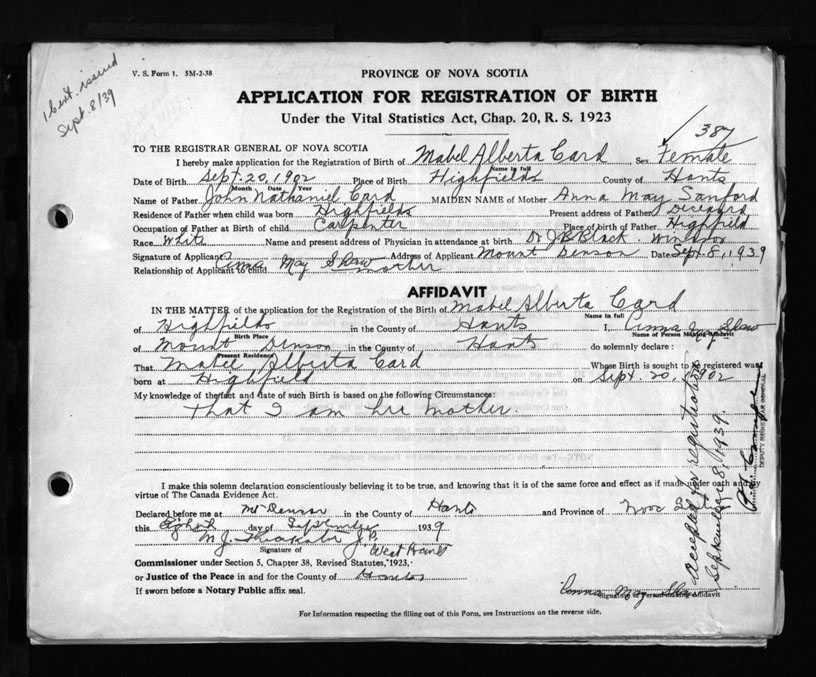 1 Cert. issued
Sept. 8/39
V. S. Form 1. 5M-2-38
PROVINCE OF NOVA SCOTIA
APPLICATION FOR REGISTRATION OF BIRTH
Under the Vital Statistics Act, Chap. 20, R. S. 1923
387
TO THE REGISTRAR GENERAL OF NOVA SCOTIA
I hereby make application for the Registration of Birth of Mabel Alberta Card Sex Female
Name in full
Date of Birth Sept. 20, 1902 Place of Birth Highfields County of Hants
Month Date Year
Name of Father John Nathaniel Card MAIDEN NAME of Mother Anna May Sanford
Residence of Father when child was born Highfields Present address of Father Deceased
Occupation of Father at Birth of child Carpenter Place of birth of Father Highfield
Race White Name and present address of Physician in attendance at birth Dr J B Black. Windsor
Signature of Applicant Anna May Shaw Address of Applicant Mount Denson Date Sept. 8, 1939
Relationship of Applicant to child mother
AFFIDAVIT
IN THE MATTER of the application for the Registration of the Birth of Mabel Alberta Card
Name in full
of Highfields in the County of Hants I, Anna May Shaw
Birth Place Name of Person Making Affidavit
of Mount Denson in the County of Hants do solemnly declare :
Present Residence
That Mabel Alberta Card Whose Birth is sought to be registered was
born at Highfield on Sept. 20, 1902
My knowledge of the fact and date of such Birth is based on the following Circumstances:
That I am her mother.
I make this solemn declaration conscientiously believing it to be true, and knowing that it is of the same force and effect as if made under oath and by
virtue of The Canada Evidence Act.
Declared before me at Mt Denson in the County of Hants and Province of Nova Scotia
this Eighth day of September 1939
M. J. J.P.
Signature of West Hants
Commissioner under Section 5, Chapter 38, Revised Statutes, 1923,
or Justice of the Peace in and for the County of Hants
If sworn before a Notary Public affix seal.
Anna May Shaw
Signature of Person making Affidavit
For Information respecting the filling out of this Form, see Instructions on the reverse side.
Accepted for registration
September 8, 1939.
DEPUTY REGISTRAR GENERAL